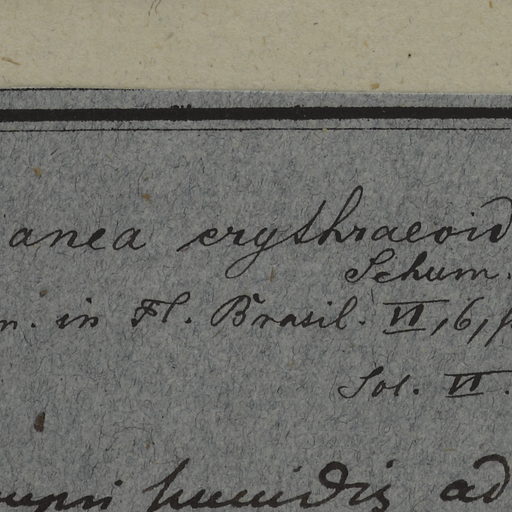 anea erythraeoid
Schum.
n. in Fl. Brasil. VI, 6, p
Sol. VI.
humidis ad